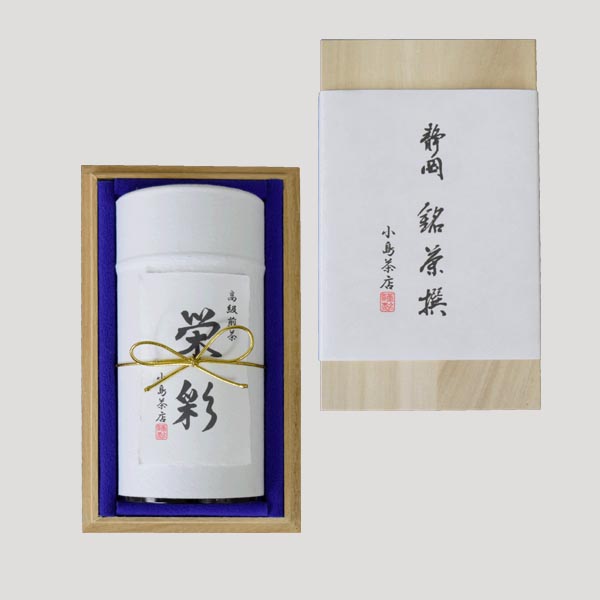 静岡 銘茶撰
小島茶店
高級煎茶
栄彩
小島茶店